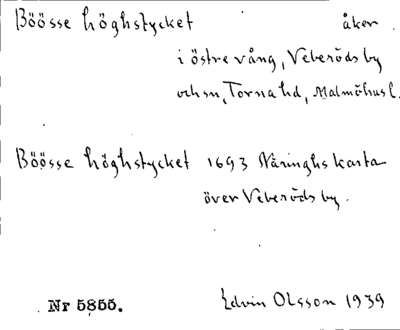 Böösse höghstycket åker
i östre vång, Veberöds by
och sn, Torna hd, Malmöhus l.
Böösse höghstycket 1693 Nåringhs karta
över Veberöds by.
Nr 5855. Edvin Olsson 1939